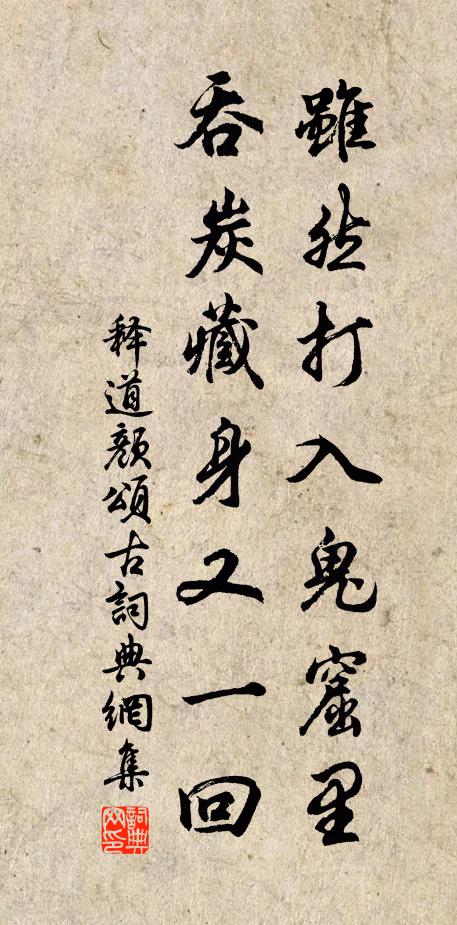 雖然打入鬼窟里
吞炭藏身又一回
释道顏頌古詞典網集
詞典网印